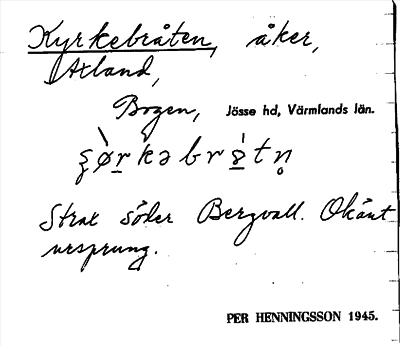 Kyrkebråten, åker,
Axland,
Bogen, Jösse hd, Värmlands län.
Strax söder Bergvall. Okänt
ursprung.
PER HENNINGSSON 1945.